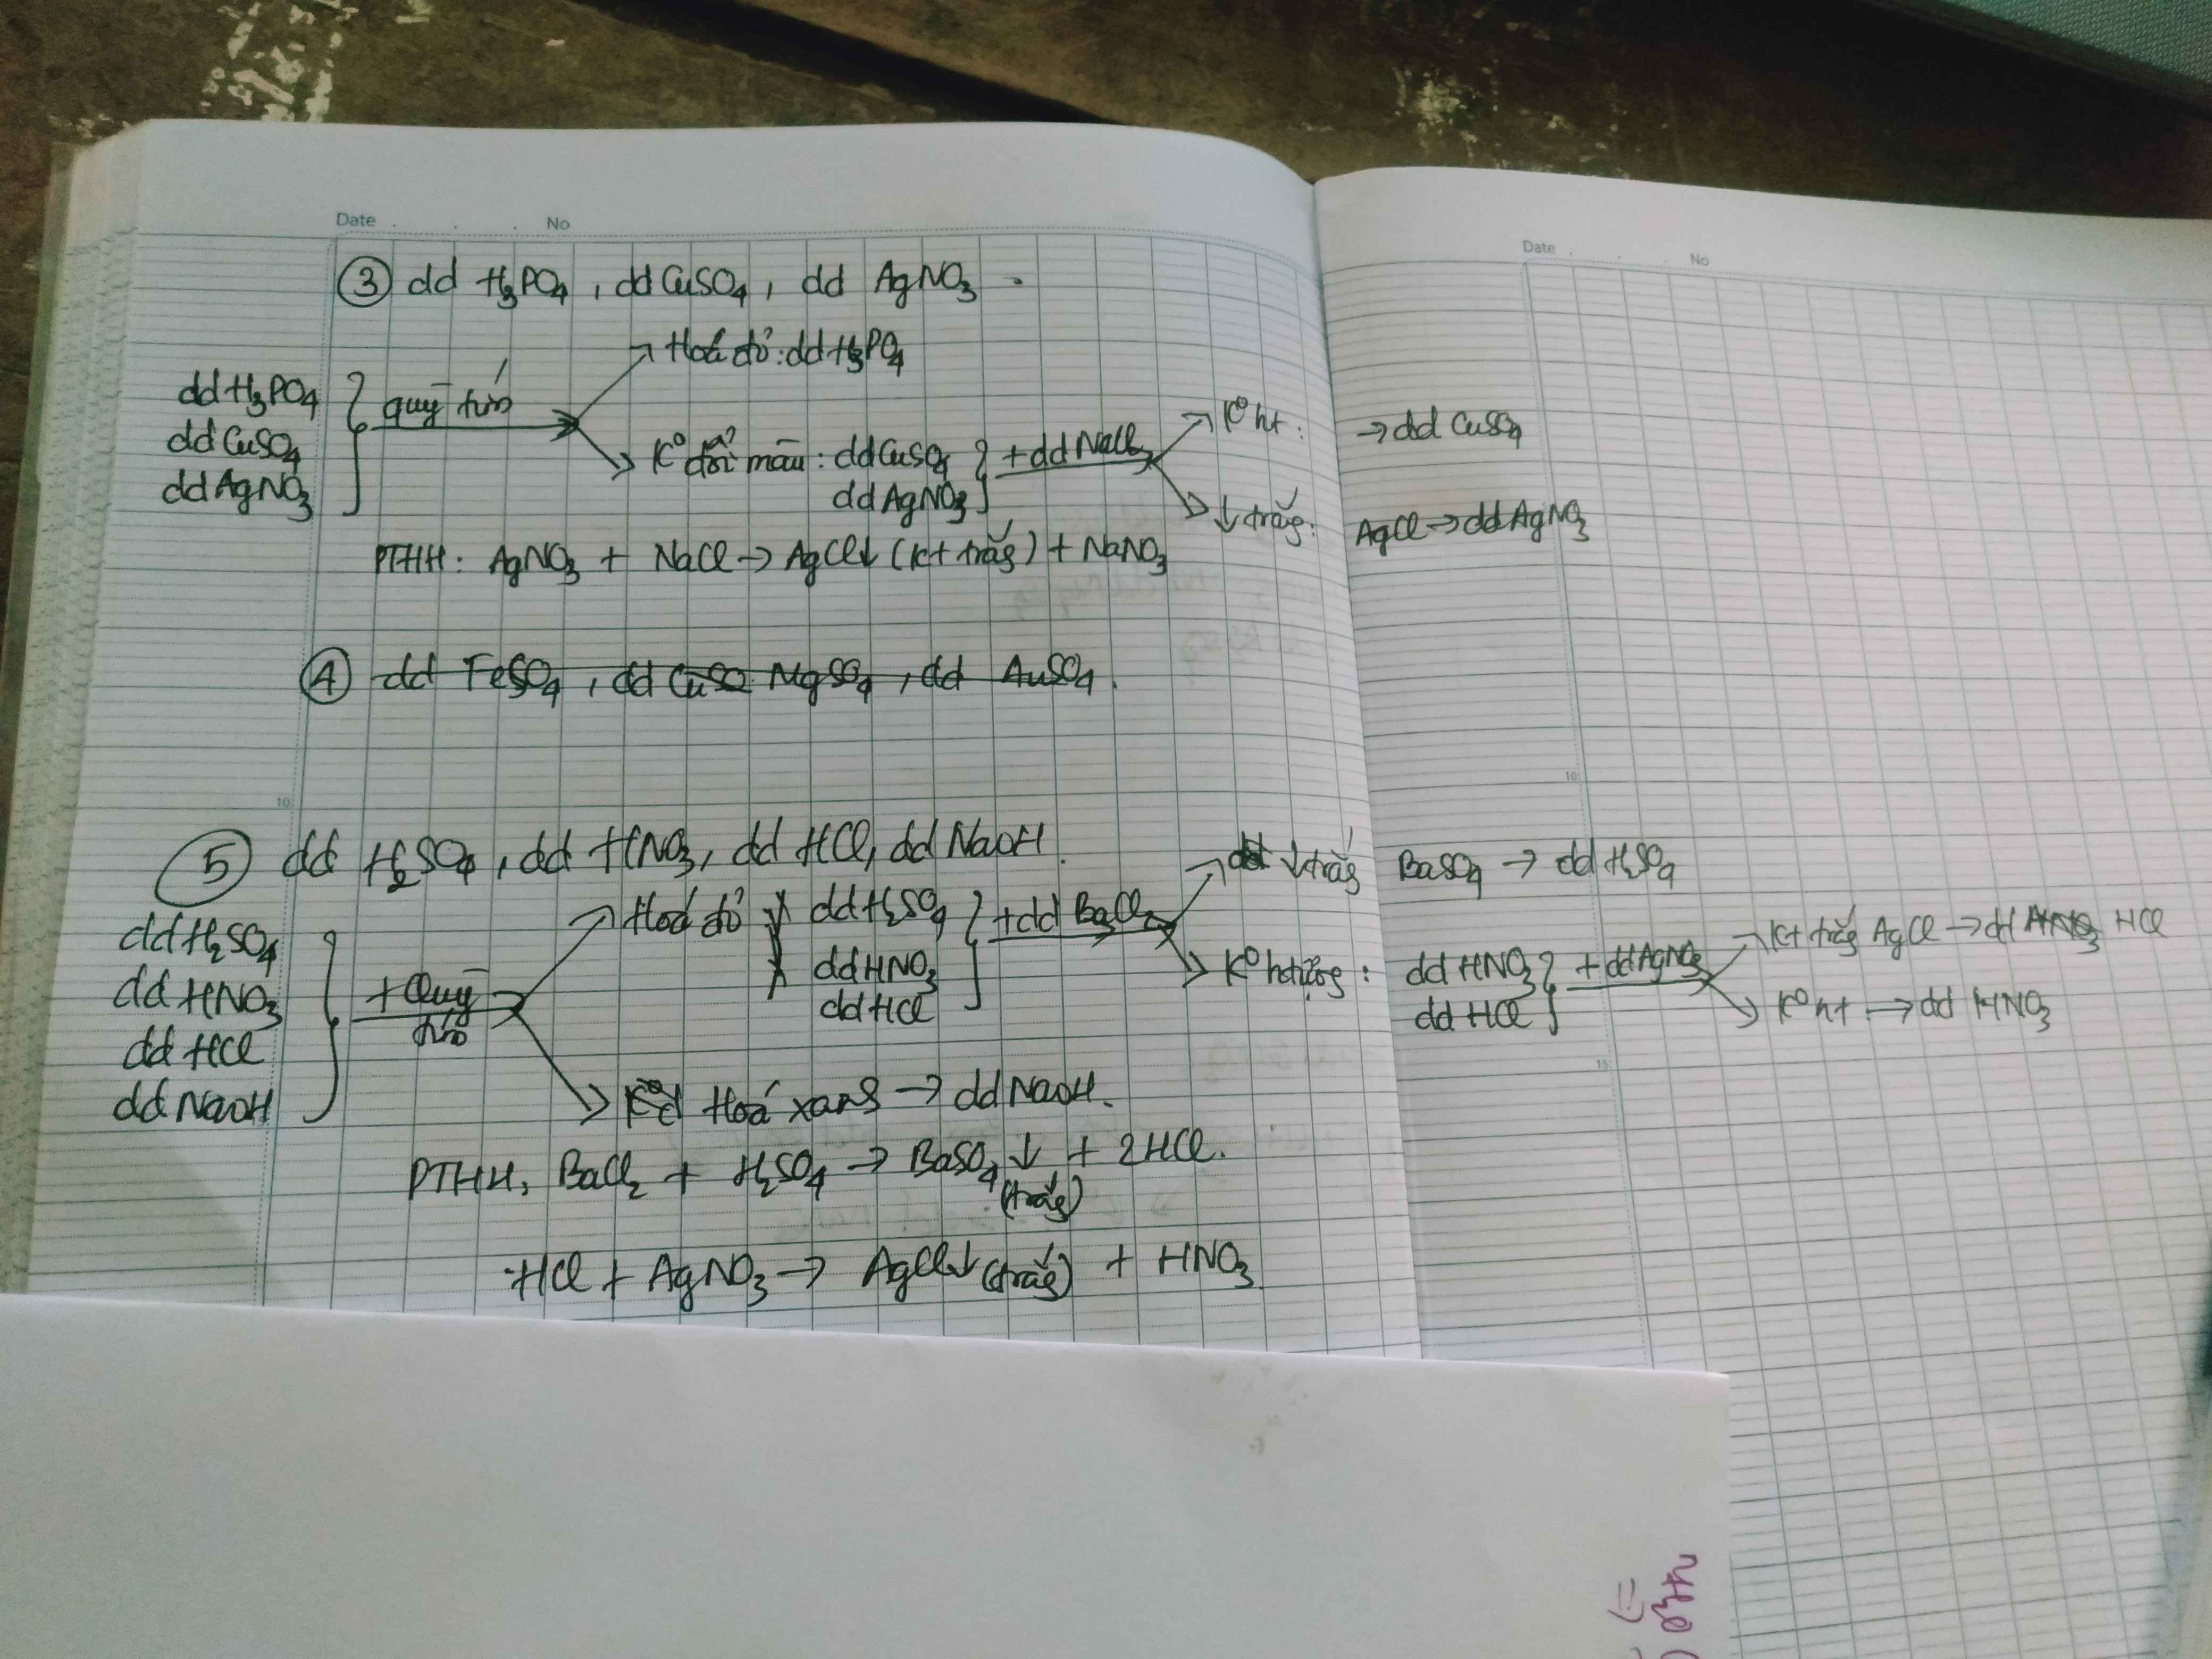 Date No
③ dd H₃PO₄, dd CuSO₄, dd AgNO₃.
dd H₃PO₄
dd CuSO₄
dd AgNO₃
quỳ tím
Hoá đỏ: dd H₃PO₄
K° đổi màu: dd CuSO₄
dd AgNO₃
+ dd NaCl
K° ht: → dd CuSO₄
↓ trắng: AgCl → dd AgNO₃
PTHH: AgNO₃ + NaCl → AgCl↓ (kt trắng) + NaNO₃
④ dd FeSO₄, dd CuSO MgSO₄, dd AuSO₄.
10
⑤ dd H₂SO₄, dd HNO₃, dd HCl, dd NaOH.
dd H₂SO₄
dd HNO₃
dd HCl
dd NaOH
+ Quỳ
tím
Hoá đỏ dd H₂SO₄
dd HNO₃
dd HCl
+ dd BaCl₂
↓ trắng BaSO₄ → dd H₂SO₄
K° htượng: dd HNO₃
dd HCl
+ dd AgNO₃
kt trắng AgCl → dd HNO₃ HCl
K° ht → dd HNO₃
Hoá xanh → dd NaOH.
PTHH, BaCl₂ + H₂SO₄ → BaSO₄↓ + 2HCl.
(trắng)
HCl + AgNO₃ → AgCl↓ (trắng) + HNO₃
Date No
10
15